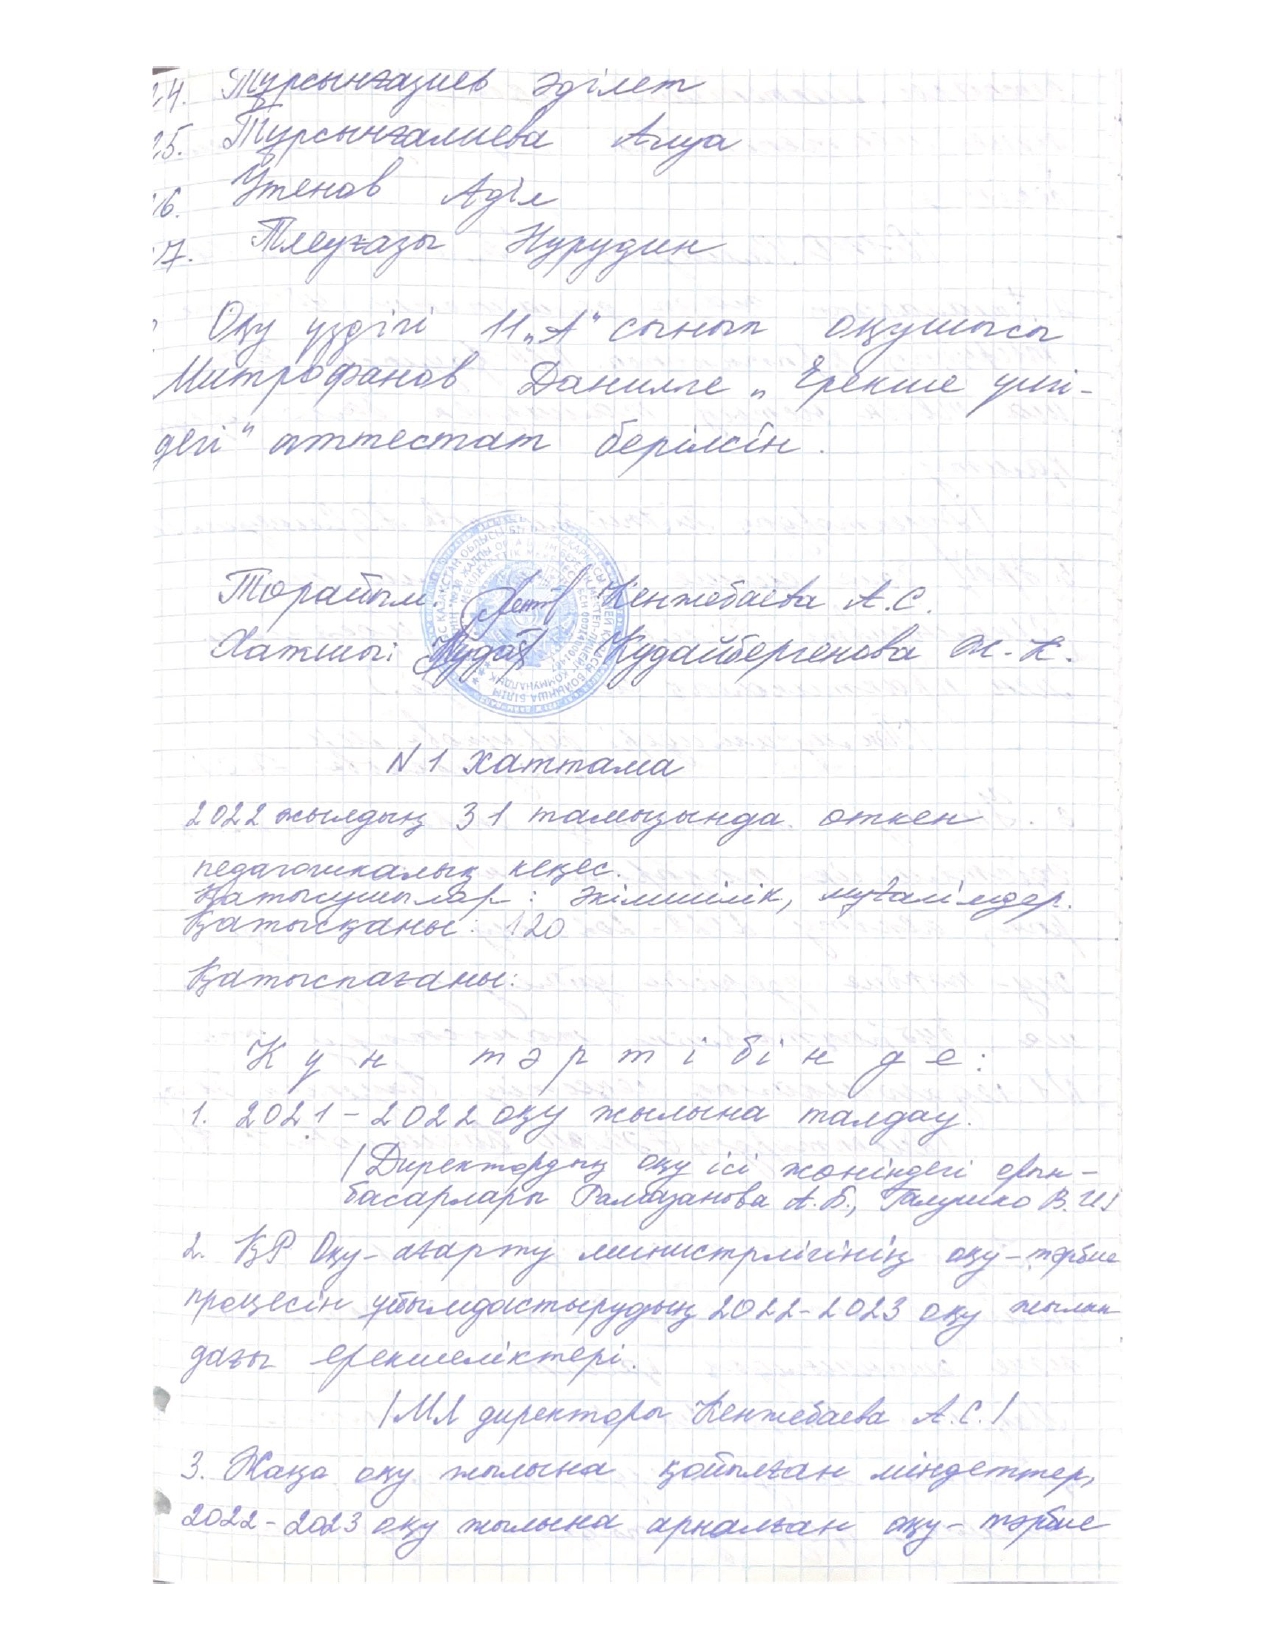 24. Тұрсынғазиев Әділет
25. Тұрсынғалиева Алуа
26. Утенов Аділ
27. Тлеуғазы Нурудин
Оқу үздігі 11„А" сынып оқушысы
Митрофанов Данилге „Ерекше үлгі-
дегі" аттестат берілсін.
Төрайым: Кенжебаева А.С.
Хатшы: Кудайбергенова Ж.К.
N1 хаттама
2022 жылдың 31 тамызында өткен
педагогикалық кеңес.
Қатысушылар: әкімшілік, мұғалімдер.
Қатысқаны: 120
Қатыспағаны:
Күн тәртібінде:
1. 2021-2022 оқу жылына талдау.
/Директордың оқу ісі жөніндегі орын-
басарлары Рамазанова А.Б., Галушко В.И/
2. ҚР Оқу-ағарту министрлігінің оқу-тәрбие
процесін ұйымдастырудың 2022-2023 оқу жылын
дағы ерекшеліктері.
/МЛ директоры Кенжебаева А.С./
3. Жаңа оқу жылына қойылған міндеттер,
2022-2023 оқу жылына арналған оқу-тәрбие